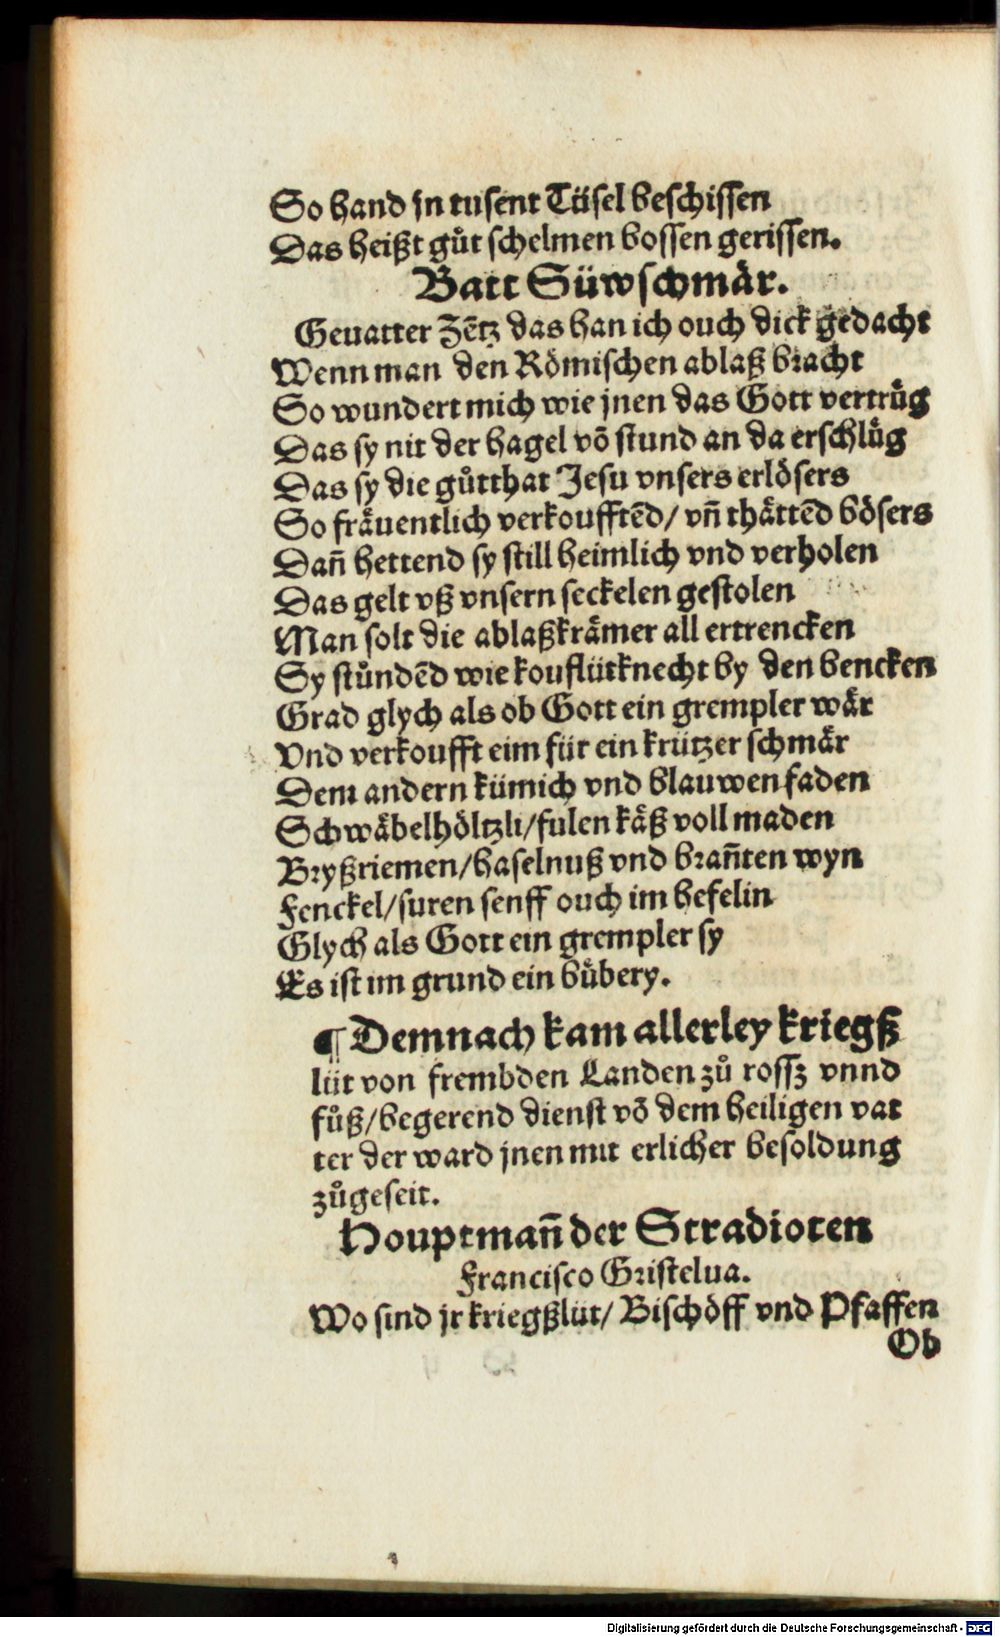 So hand jn tusent Tüfel beschissen
Das heißt gůt schelmen bossen gerissen.
Batt Süwschmär.
Gevatter Zētz das han ich ouch dick gedacht
Wenn man den Römischen ablaß bracht
So wundert mich wie jnen das Gott vertrůg
Das sy nit der hagel vō stund an da erschlůg
Das sy die gůtthat Jesu vnsers erlösers
So fräuentlich verkoufftēd/ vn̄ thättēd bösers
Dan̄ hettend sy still heimlich vnd verholen
Das gelt vß vnsern seckelen gestolen
Man solt die ablaßkrämer all ertrencken
Sy stůndēd wie kouflütknecht by den bencken
Grad glych als ob Gott ein grempler wär
Vnd verkoufft eim für ein krützer schmär
Dem andern kümich vnd blauwen faden
Schwäbelhöltzli/fulen käß voll maden
Bryßriemen/haselnuß vnd bran̄ten wyn
Fenckel/suren senff ouch im hefelin
Glych als Gott ein grempler sy
Es ist im grund ein bůbery.
¶ Demnach kam allerley kriegß
lüt von frembden Landen zů rossz vnnd
fůß/begerend dienst vō dem heiligen vat
ter der ward jnen mit erlicher besoldung
zůgeseit.
Houptman̄ der Stradioten
Francisco Gristelua.
Wo sind jr kriegßlüt/ Bischöff vnd Pfaffen
Ob
Digitalisierung gefördert durch die Deutsche Forschungsgemeinschaft - DFG